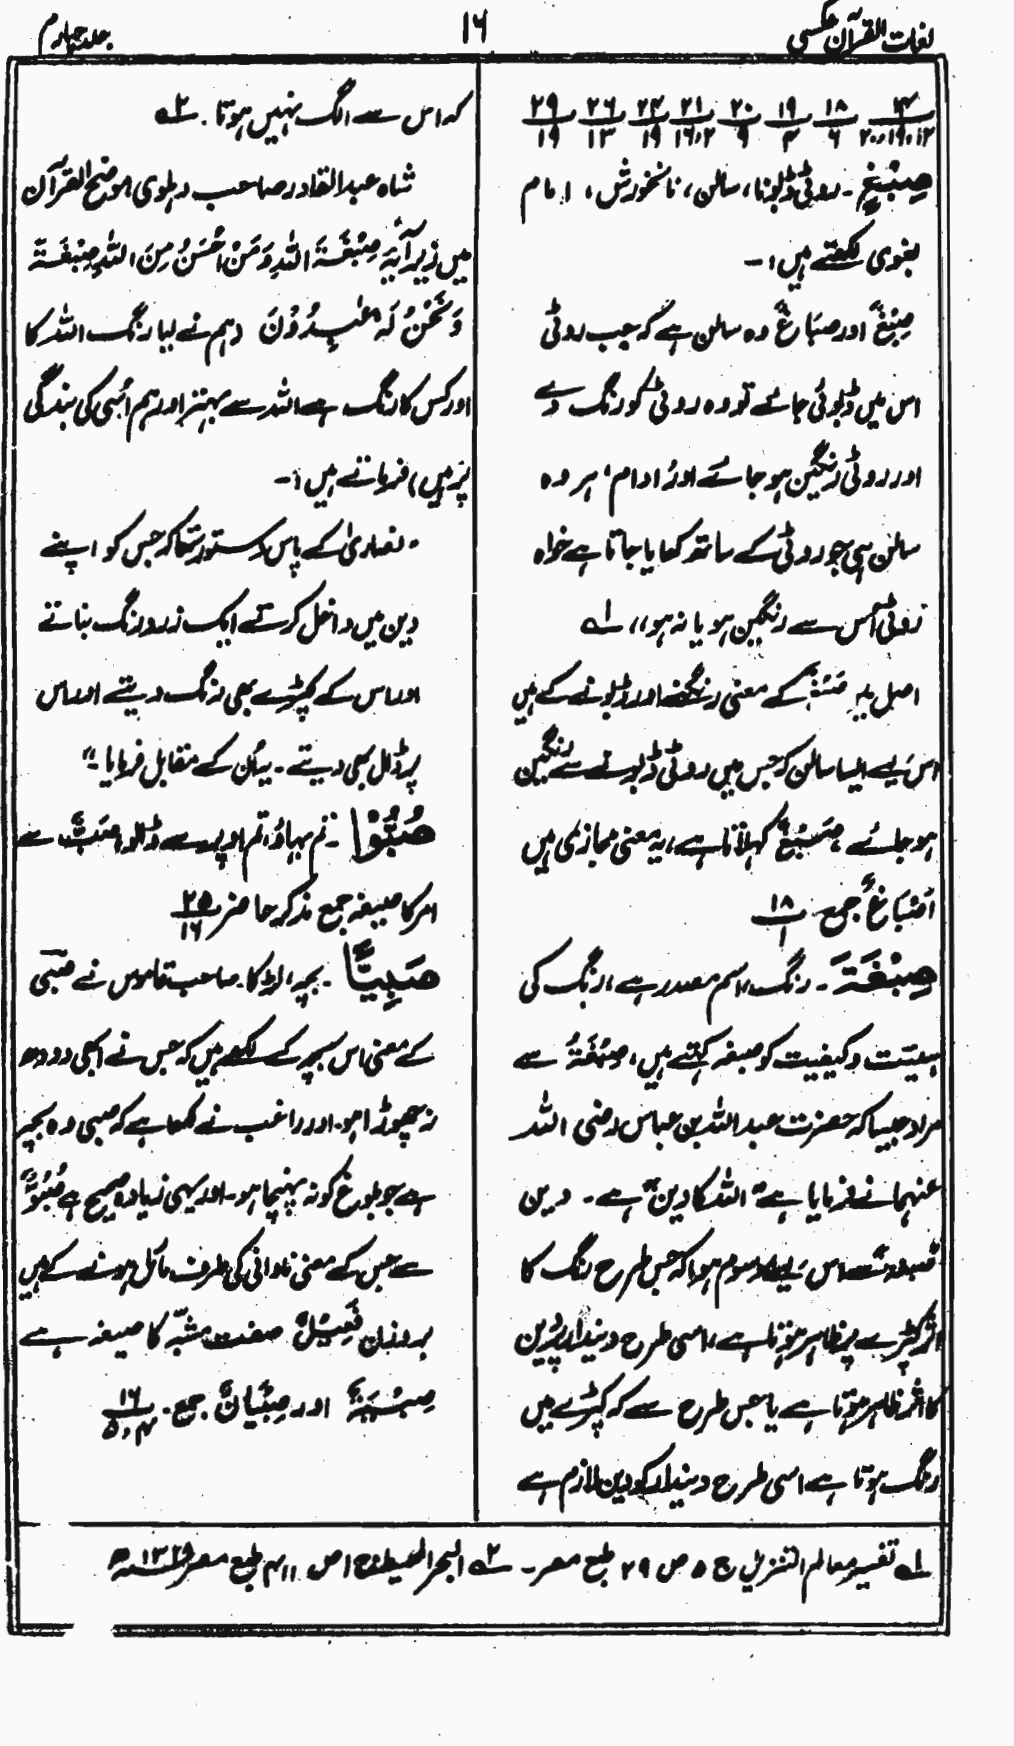 لغات القرآن عکسی
۱۶
جلد چہارم
۴ ۱۸ ۱۹ ۲۰ ۲۱ ۲۴ ۲۶ ۲۹
۲۰،۱۹،۱۲ ۶ ۴ ۹ ۱۶،۲ ۱۹ ۱۳ ۱۹
صِبْغٍ ۔ روٹی ڈبونا، سالن، نانخورش، امام
بغوی لکھتے ہیں :۔
صِبْغٌ اور صبَاغٌ وہ سالن ہے کہ جب روٹی
اس میں ڈبوئی جائے تو وہ روٹی کو رنگ دے
اور روٹی رنگین ہو جائے اور ادام، ہر وہ
سالن ہی جو روٹی کے ساتھ کھایا جاتا ہے خواہ
روٹی اُس سے رنگین ہو یا نہ ہو،، ۱ـہ
اصل یہ کے معنی رنگنے اور ڈبونے کے ہیں
اس لیے ایسا سالن کہ جس میں روٹی ڈبونے سے رنگین
ہو جائے صَبْغٌ کہلاتا ہے، یہ معنی مجازی ہیں
اَصْبَاغٌ جمع ۱۸
۱
صِبْغَةَ ۔ رنگ، اسم مصدر ہے، رنگ کی
ہیئت و کیفیت کو صبغہ کہتے ہیں، صِبْغَةُ سے
مراد جیسا کہ حضرت عبداللہ بن عباس رضی اللہ
عنہما نے فرمایا ہے "اللہ کا دین" ہے ۔ دین
اس لیے موسوم ہوا کہ جس طرح رنگ کا
اثر کپڑے پر ظاہر ہوتا ہے، اسی طرح دیندار پر دین
کا اثر ظاہر ہوتا ہے یا جس طرح سے کہ کپڑے میں
رنگ ہوتا ہے اسی طرح دیندار کو دین لازم ہے
کہ اس سے الگ نہیں ہوتا ۔ ۲ـہ
شاہ عبدالقادر صاحب دہلوی موضح القرآن
میں زیر آیہ صِبْغَةَ اللّٰہِ وَمَنْ اَحْسَنُ مِنَ اللّٰہِ صِبْغَةً
وَّنَحْنُ لَہٗ عٰبِدُوْنَ (ہم نے لیا رنگ اللہ کا
اور کس کا رنگ ہے اللہ سے بہتر اور ہم اُسی کی بندگی
پر ہیں) فرماتے ہیں :۔
"نصاریٰ کے پاس دستور تھا کہ جس کو اپنے
دین میں داخل کرتے ایک زرد رنگ بناتے
اور اس کے کپڑے بھی رنگ دیتے اور اس
پر ڈال بھی دیتے ۔ یہ اُن کے مقابل فرمایا ۔"
صُبُّوْا ۔ تم بہاؤ، تم اوپر سے ڈالو، صَبٌّ سے
امر کا صیغہ جمع مذکر حاضر ۲۵
۱۶
صَبِیًّا ۔ بچہ، لڑکا ۔ صاحب قاموس نے صَبِّی
کے معنی اس بچہ کے لکھے ہیں کہ جس نے ابھی دودھ
نہ چھوڑا ہو ۔ اور راغب نے لکھا ہے کہ صبی وہ بچہ
ہے جو بلوغ کو نہ پہنچا ہو ۔ اور یہی زیادہ صحیح ہے صُبُوٌّ
سے جس کے معنی نادانی کی طرف مائل ہونے کے ہیں
بروزن فَعِیْلٌ صفت مشبّہ کا صیغہ ہے
صِبْیَةٌ اور صِبْیَانٌ جمع ۔ ۱۶
۴،۵
۱ـہ تفسیر معالم التنزیل ج ۵ ص ۲۹ طبع مصر ۔ ۲ـہ البحر المحیط ج ۱ ص ۴۱۱ طبع مصر ۱۳۲۹ھ